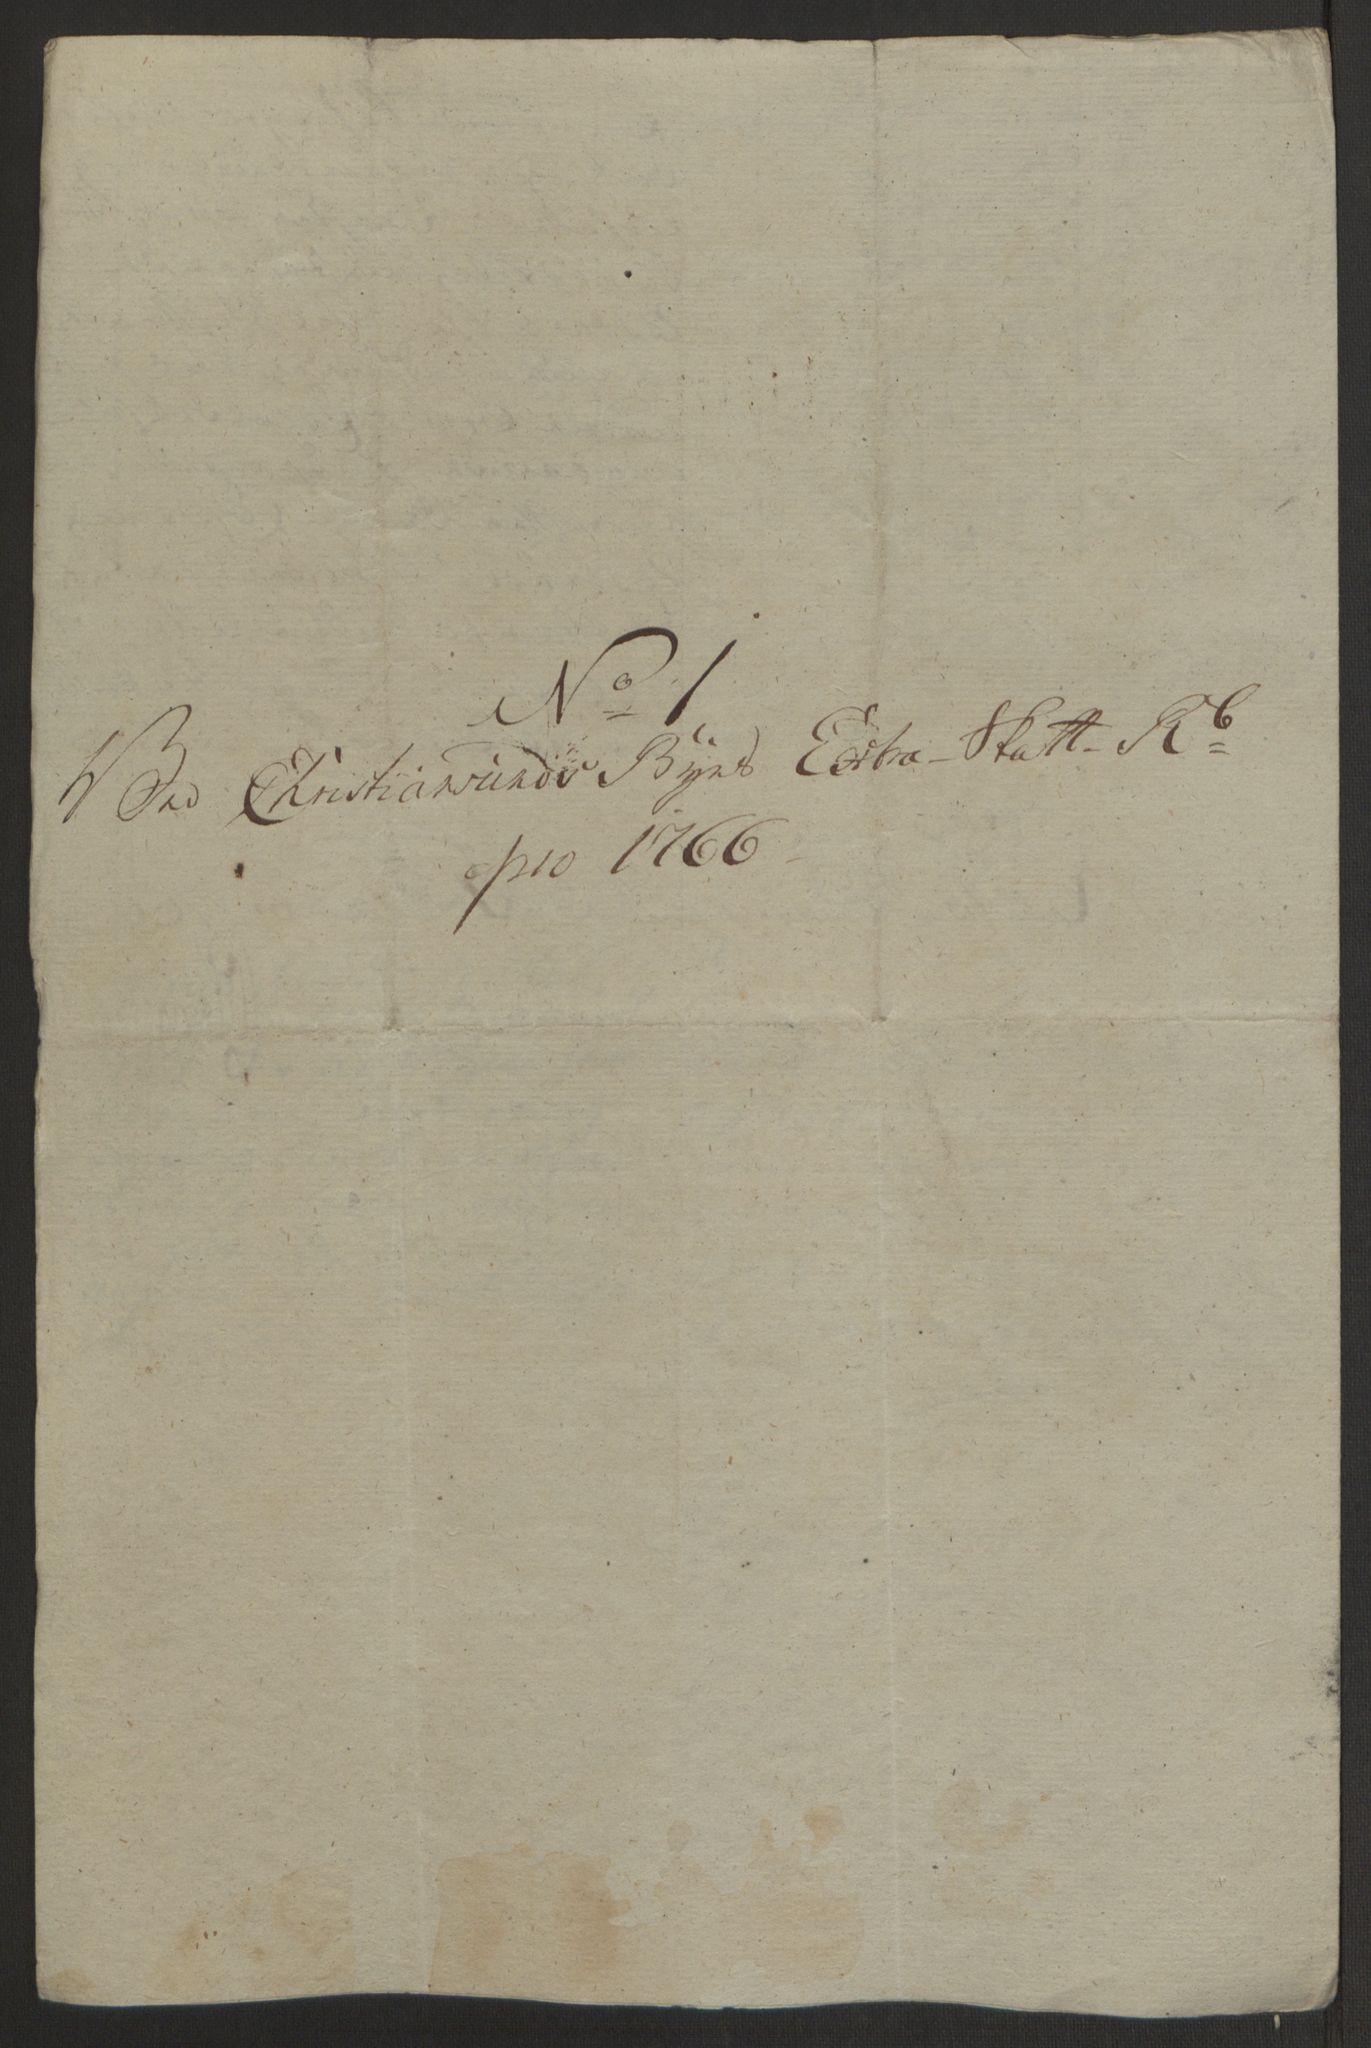 No 1
Ved Christiansunds Byes Extra-Skatt-Rb
pro 1766